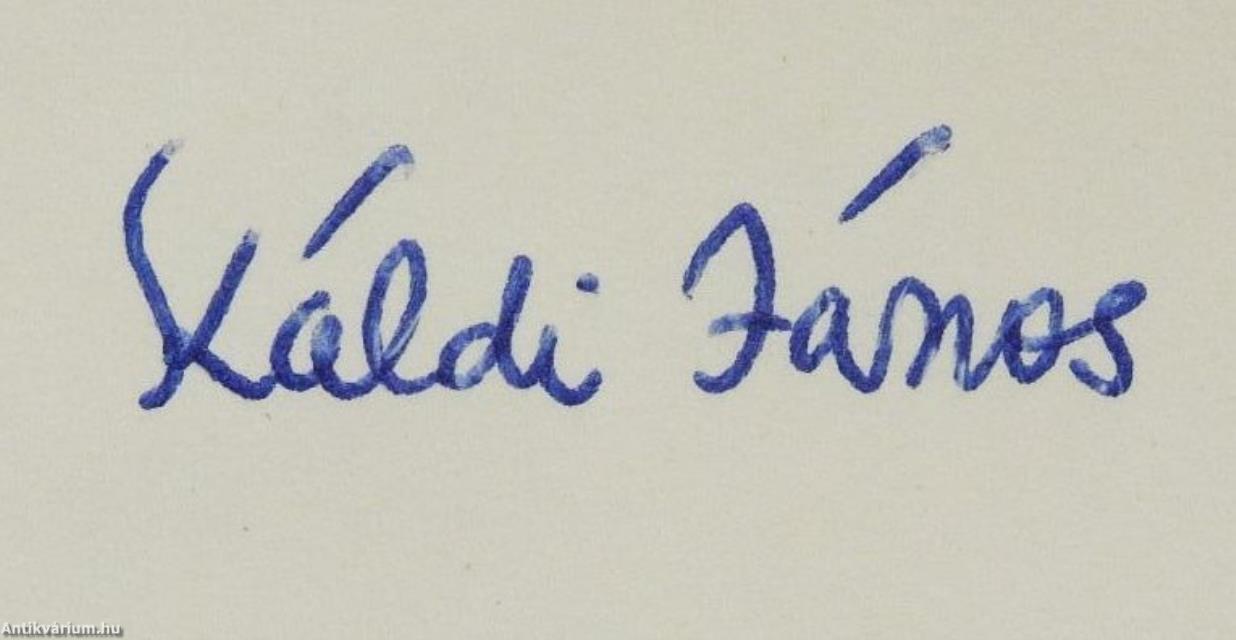 Káldi János
Antikvárium.hu